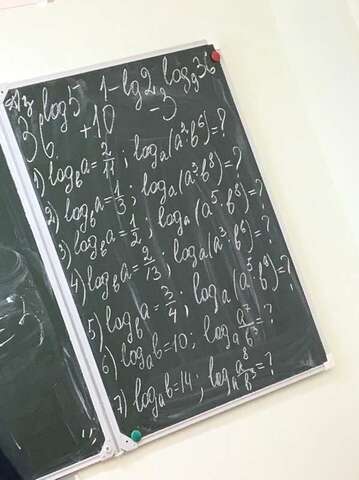 36^log₆5 + 10^1-lg2 - 3^log₉36
1) log_b a = 2/11; log_a(a³·b⁶) = ?
2) log_b a = 1/3; log_a(a³·b⁸) = ?
3) log_b a = 1/2; log_a(a⁵·b⁸) = ?
4) log_b a = 2/13; log_a(a³·b⁶) = ?
5) log_b a = 3/4; log_a(a⁵·b⁹) = ?
6) log_a b = 10; log_a a⁷/b³ = ?
7) log_a b = 14; log_a a⁸/b³ = ?